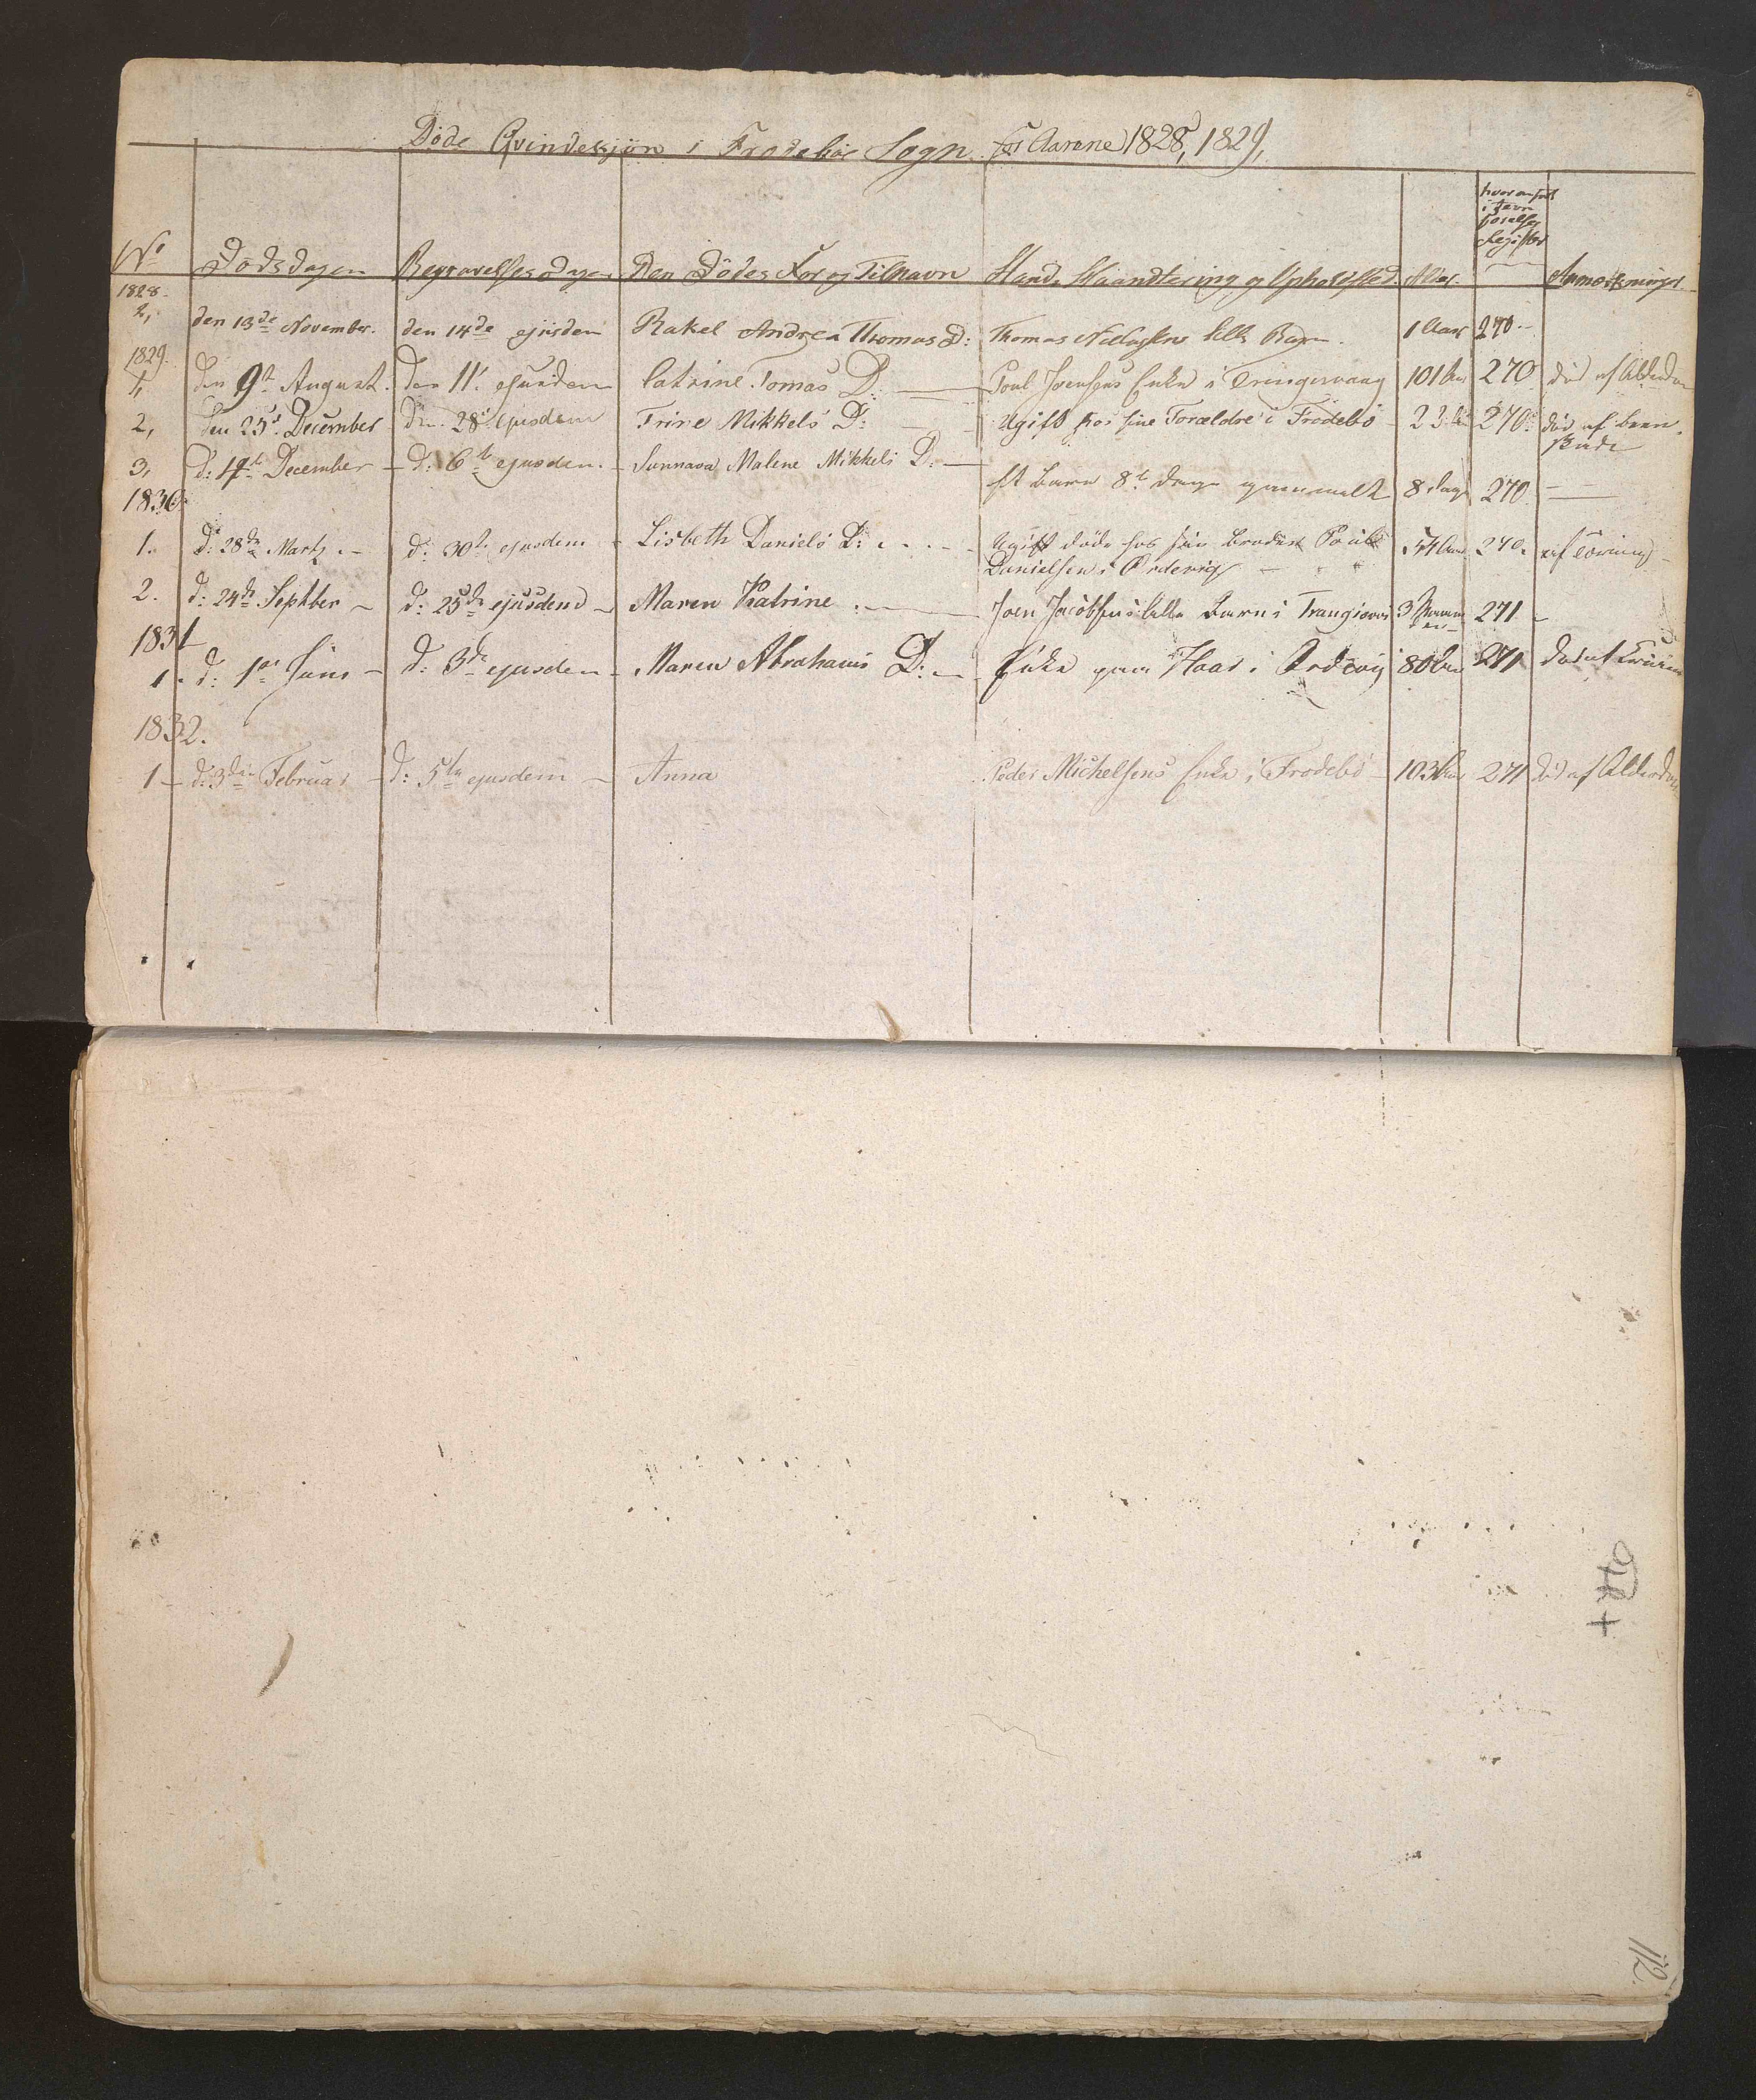 Døde Qvindekjøn i Frodebøe Sogn for Aarene 1828, 1829,
No Dødsdagen Begravelsesdagen Den Dødes For og Tilnavn Stand, Haandtering og Opholdsted. Alder. hvor anført i Jevnførelses Register Anmærkninger
1828.
2, den 13de November. den 14de ejusdem Rakel Andrea Thomas D: Thomas lille Barn. 1 Aar 270.
1829.
1, den 9de August. den 11te ejusdem Catrine Tomas D: Poul Joensens Enke i 101 Aar 270 død af Alderdom
2, den 25de December den 28de ejusdem Trine Mikkels D: Ugift hos sine Forældre i Frodebø 22 Aar 270. død af
3, d: 1te December d: 6te ejusdem. Sunnava Malene Mikkels D: et Barn 8te Dage gammelt 8 Dage 270.
1830.
1. d: 28de Martz d: 30te ejusdem Lisbeth Daniels D: Ugift døde hos sin Broder
Danielsen i 270.
2. d: 24de Septber d: 25de ejusdem Maren Katrine Joen Jacobsens lille Barn i 3 271
1831
1. d: 1ste d: 3de ejusdem Maren Abrahams D: Enke i 80 Aar 271 død af
1832.
1 d: 3die Februar d: 5te ejusdem Anna Peder Michelsens Enke i Frodebø 103 Aar 271 død af Alderdom
112.